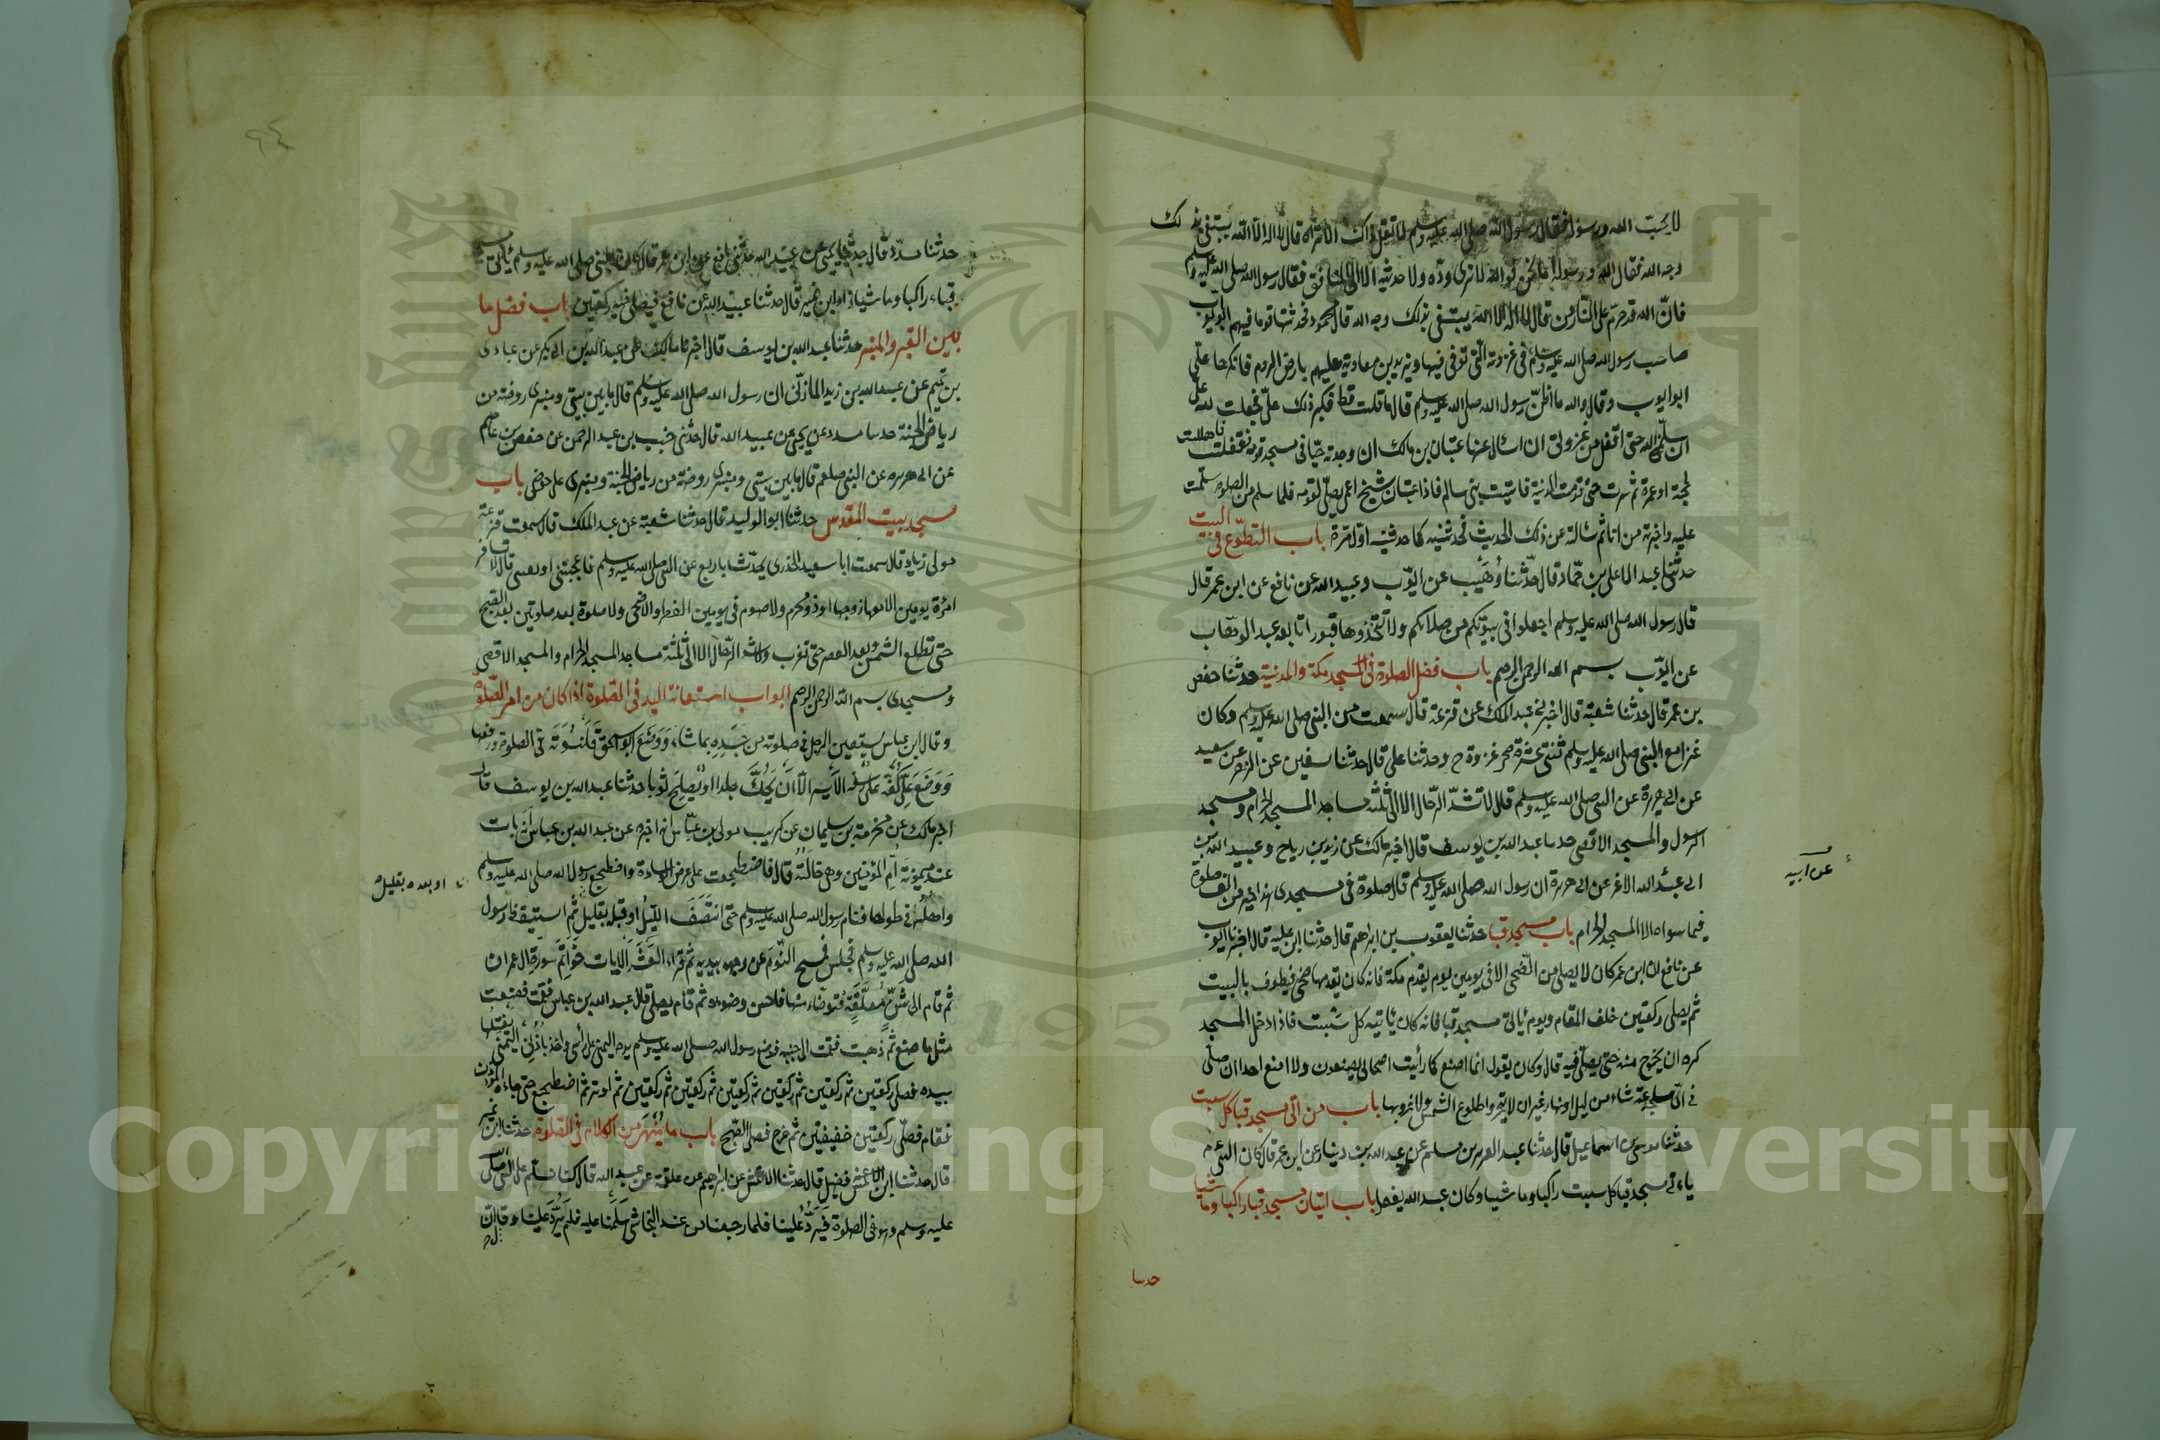 لا يحبّ الله ورسوله فقال رسول الله صلى الله عليه وسلم لا تقل ذاك الا تراه قال لا اله الا الله يبتغي بذلك
وجه الله فقال الله ورسوله اما نحن فوالله لا نرى ودّه ولا حديثه الا الى المنافق فقال رسول الله صلى الله عليه وسلم
فانّ الله قد حرّم على النّار من قال لا اله الا الله يبتغي بذلك وجه الله قال محمود فحدثتها قوما فيهم ابو ايوب
صاحب رسول الله صلى الله عليه وسلم في غزوته الّتي توفي فيها ويزيد بن معاوية عليهم بارض الروم فانكرها علّي
ابو ايوب وقال والله ما اظنّ رسول الله صلى الله عليه وسلم قال ما قلت قط فكبر ذلك علّي فجعلت لله علّي
ان سلّمني الله حتى اقفل من غزوتي ان اسال عنها عتبان بن مالك ان وجدته حيّا في مسجد قومه فقفلت فاهللت
بحجة او عمرة ثم سرت حتى قدمت المدينة فاتيت بني سالم فاذا عتبان شيخ اعمى يصلّي لقومه فلما سلم من الصلوة سلّمت
عليه واخبرته من انا ثم سالته عن ذلك الحديث فحدثنيه كما حدثنيه اول مرّة باب التطوّع في البيت
حدثنا عبد الاعلى بن حمّاد قال حدّثنا وُهَيْب عن ايوّب وعبيد الله عن نافع عن ابن عمر قال
قال رسول الله صلى الله عليه وسلم اجعلوا في بيوتكم من صلاتكم ولا تتّخذوها قبورا تابعه عبد الوهّاب
عن ايوّب بسم الله الرحمن الرحيم باب فضل الصلوة في المسجد مكة والمدينة حدثنا حفص
بن عمر قال حدثنا شعبة قال اخبرني عبد الملك عن قزعة قال سمعت من النبي صلى الله عليه وسلم وكان
غزا مع النبي صلى الله عليه وسلم ثنتي عشرة غزوة ح وحدثنا علي قال حدثنا سفين عن الزهري عن سعيد
عن ابي هريرة عن النبي صلى الله عليه وسلم قال لا تشدّ الرّحال الا الى ثلثة مساجد المسجد الحرام ومسجد
الرسول والمسجد الاقصى حدثنا عبد الله بن يوسف قال اخبرنا مالك عن زيد بن رباح وعبيد الله بن
ابي عبد الله الاغر عن ابي هريرة ان رسول الله صلى الله عليه وسلم قال صلوة في مسجدي هذا خير من الف صلوة
عن ابيه
فيما سواه الا المسجد الحرام باب مسجد قبا حدثنا يعقوب بن ابراهيم قال حدثنا ابن علية قال اخبرنا ايوب
عن نافع ان ابن عمر كان لا يصلي من الضّحى الا في يومين يوم يقدم مكة فانه كان يقدمها ضحى فيطوف بالبيت
ثم يصلي ركعتين خلف المقام ويوم ياتي مسجد قبا فانه كان ياتيه كل سَبت فاذا دخل المسجد
كره ان يخرج منه حتى يصلّي فيه قال وكان يقول انما اصنع كما رأيت اصحابي يصنعون ولا امنع احدا ان صلّى
في ايّ ساعة شاء من ليل او نهار غير ان لا يتحروا طلوع الشمس ولا غروبها باب من اتى مسجد قبا كل سبت
حدثنا موسى بن اسماعيل قال حدثنا عبد العزيز بن مسلم عن عبد الله بن دينار عن ابن عمر قال كان النبي م
ياتي مسجد قبا كل سبت راكبا وماشيا وكان عبد الله يفعله باب اتيان مسجد قبا راكبا وماشيا
حدثنا
٩٤
حدثنا مسدّد قال حدثنا يحيى عن عبيد الله حدّثني نافع عن ابن عمر قال كان النبي صلى الله عليه وسلم ياتي مسجد
قباء راكبا وماشيا زاد ابن نمير قال حدثنا عبيد الله عن نافع فيصلي فيه ركعتين باب فضل ما
بين القبر والمنبر حدثنا عبد الله بن يوسف قال اخبرنا مالك عن عبد الله بن ابي بكر عن عباد
بن تميم عن عبد الله بن زيد المازنّي ان رسول الله صلى الله عليه وسلم قال ما بين بيتي ومنبري روضة من
رياض الجنة حدثنا مسدد عن يحيى عن عبيد الله قال حدثني خبيب بن عبد الرحمن عن حفص بن عاصم
عن ابي هريره عن النبي صلعم قال ما بين بيتي ومنبري روضة من رياض الجنة ومنبري على حوضي باب
مسجد بيت المقدس حدثنا ابو الوليد قال حدثنا شعبة عن عبد الملك قال سمعت قزعة
مولى زياد قال سمعت ابا سعيد الخدري يحدّث باربع عن النبي صلى الله عليه وسلم فاعجبنني قال لا تسافر
امرأة يومين الا معها زوجها او ذو محرم ولا صوم في يومين الفطر والاضحى ولا صلوة بعد صلوتين بعد الصبح
حتى تطلع الشمس وبعد العصر حتى تغرب ولا تشد الرّحال الا الى ثلثة مساجد المسجد الحرام والمسجد الاقصى
ومسجدي بسم الله الرحمن الرحيم ابواب استعانة اليد في الصّلوة اذا كان من امر الصّلوة
وقال ابن عباس يستعين الرجل في صلوته من جَسَدِه بما شاء وَوَضَع ابو اسحق قَلَنْسُوَته في الصلوة ورفعها
وَوَضَعَ علي كَفّه على رسغه الأيسر الّا انْ يَحُكَّ جلدا او يُصلِحَ ثوبا حدثنا عبد الله بن يوسف قال
اخبرنا مالك عن مخرمة بن سليمان عن كريب مولى بن عبّاس انه اخبره عن عبد الله بن عباس انه بات
عند ميمونة اُمّ المؤمنين وهي خالته قال فاضطجعت على عرض الوسادة واضطجع رسول الله صلى الله عليه وسلم
او بعده بقليل
واهلُه في طولها فنام رسول الله صلى الله عليه وسلم حتى انتَصَفَ اللّيلُ او قبله بقليل ثم استيقظ رسول
الله صلى الله عليه وسلم فجلس فمسح النّوم عن وجهه بيديه ثم قرا العَشْر الآيات خَواتِمَ سورة ال عمران
ثم قام الى شَنٍّ مُعَلَّقَةٍ فتوضّاء منها فاحسن وضوءه ثم قام يصلي قال عبد الله بن عباس فقمت فصنعت
مثل ما صنع ثم ذهبت فقمت الى جنبه فوضع رسول الله صلى الله عليه وسلم يده اليمنى على رأسي واخذ باُذُني اليُمنى يفتِلُها
بيده فصلى ركعتين ثم ركعتين ثم ركعتين ثم ركعتين ثم ركعتين ثم ركعتين ثم اوتر ثم اضطجع حتى جاءه المؤذن
فقام فصلّى ركعتين خفيفتين ثم خرج فصلى الصّبح باب ما يُنهَى من الكلام في الصّلوة حدثنا ابن نمير
قال حدثنا ابن فضيل قال حدثنا الاعمش عن ابراهيم عن علقمة عن عبد الله قال كنا نسلّم على النبي صلى
عليه وسلم وهو في الصلوة فيَردّ علينا فلما رجعنا من عند النجاشي سلّمنا عليه فلم يَردّ علينا وقال انّ
Copyright © King Saud University
1957
King Saud University